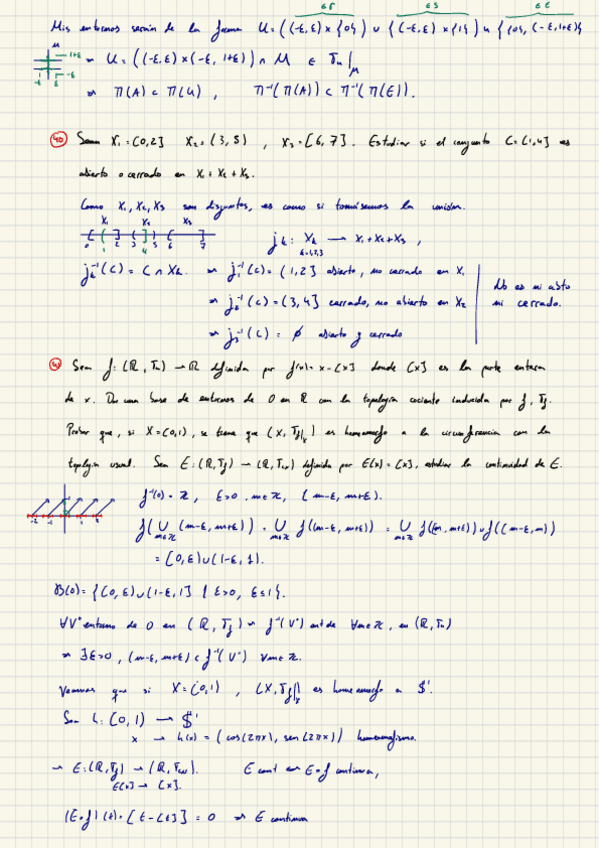 εr εs εt
Mis entornos serán de la forma U = ((-ε,ε) × {0}) ∪ {(-ε,ε) × {1}) ∪ {{0}, (-ε,1+ε)}
M 1+ε -ε -ε ε ⇒ U = ((-ε,ε) × (-ε, 1+ε)) ∩ M ∈ Tu|M
⇒ Π(A) ⊂ Π(U), Π⁻¹(Π(A)) ⊂ Π⁻¹(Π(E)).
40 Sean X₁ = (0,2] X₂ = (3,5), X₃ = [6,7]. Estudiar si el conjunto C = (1,4] es
abierto o cerrado en X₁ + X₂ + X₃.
Como X₁, X₂, X₃ son disjuntos, es como si tomásemos la unión.
X₁ X₂ X₃
0 1 2 3 4 5 6 7
jₖ : Xₖ → X₁+X₂+X₃,
k=1,2,3
jₖ⁻¹(C) = C ∩ Xₖ. ⇒ j₁⁻¹(C) = (1,2] abierto, no cerrado en X₁
⇒ j₂⁻¹(C) = (3,4] cerrado, no abierto en X₂
⇒ j₃⁻¹(C) = ∅ abierto y cerrado
No es ni abto
ni cerrado.
Sea f: (ℝ, Tu) → ℝ definida por f(x) = x - [x] donde [x] es la parte entera
de x. Dar una base de entornos de 0 en ℝ con la topología cociente inducida por f, Tf.
Probar que, si X = [0,1), se tiene que (X, Tf|x) es homeomorfo a la circunferencia con la
topología usual. Sea E: (ℝ, Tf) → (ℝ, Tu) definida por E(x) = [x], estudiar la continuidad de E.
-2 -1 1 2
f⁻¹(0) = ℤ, ε>0. m∈ℤ, (m-ε, m+ε).
f(∪ (m-ε, m+ε)) = ∪ f((m-ε, m+ε)) = ∪ f([m, m+ε)) ∪ f((m-ε, m))
m∈ℤ m∈ℤ m∈ℤ
= [0,ε) ∪ (1-ε, 1).
B(0) = {[0,ε) ∪ (1-ε,1] | ε>0, ε≤1}.
∀V⁰ entorno de 0 en (ℝ, Tf) ⇒ f⁻¹(V⁰) ent de ∀m∈ℤ, en (ℝ, Tu)
⇒ ∃ε>0, (m-ε, m+ε) ⊂ f⁻¹(V⁰) ∀m∈ℤ.
Veamos que si X = [0,1), (X, Tf|x) es homeomorfo a $¹.
Sea h: [0,1) → $¹
x → h(x) = (cos(2πx), sen(2πx)) homeomorfismo.
→ E: (ℝ, Tf) → (ℝ, Tu). E cont ⇔ E∘f continua,
E(x) → [x].
(E∘f)(t) = [t-[t]] = 0 ⇒ E continua